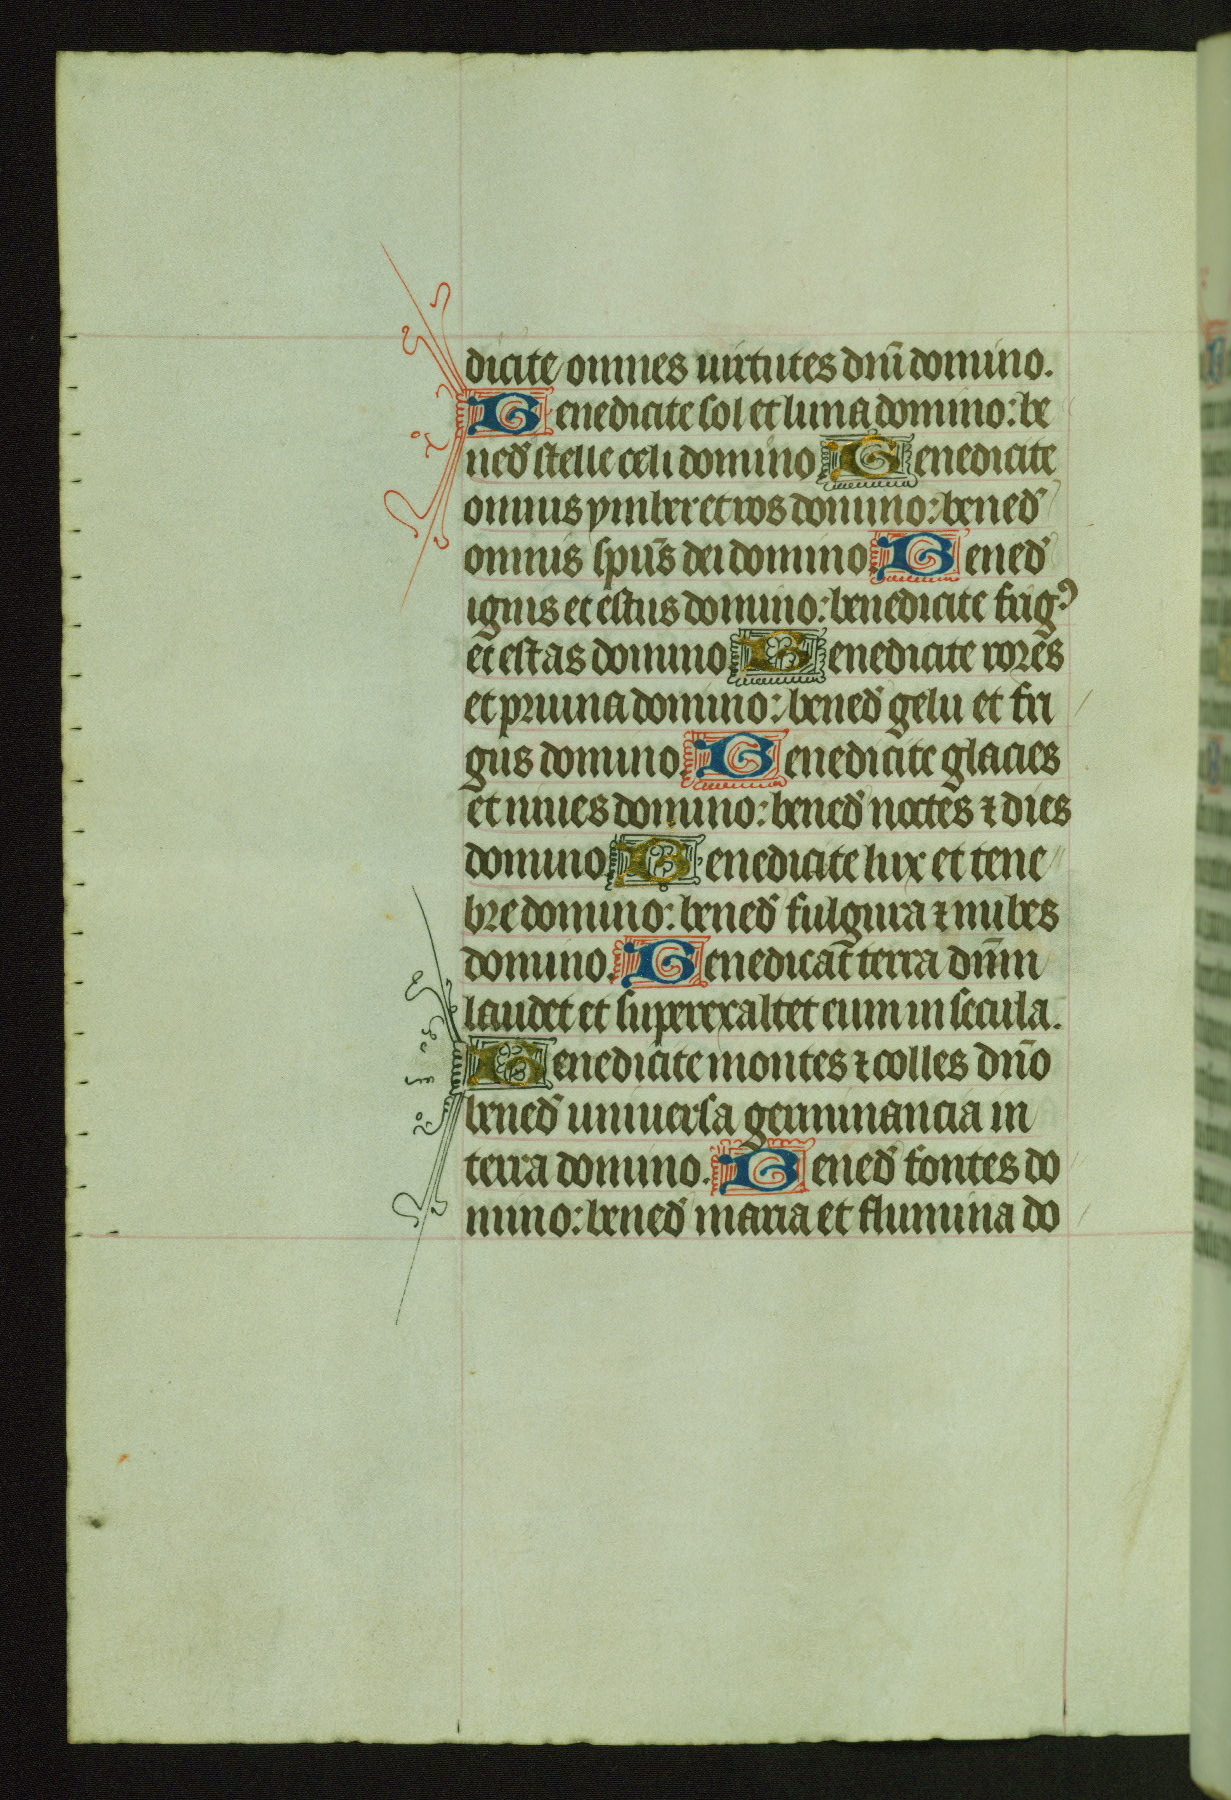 dicite omnes uirtutes dnī domino.
Benedicite sol et luna domino: be
ned̉ stelle celi domino. Benedicite
omnis ymber et ros domino: bened̉
omnis sp̄us dei domino. Bened̉
ignis et estus domino: benedicite frigꝰ
et estas domino. Benedicite rores
et pruina domino: bened̉ gelu et fri
gus domino. Benedicite glacies
et niues domino: bened̉ noctes ⁊ dies
domino. Benedicite lux et tene
bre domino: bened̉ fulgura ⁊ nubes
domino. Benedicat̄ terra dn̄m
laudet et superexaltet eum in secula.
Benedicite montes ⁊ colles dn̄o
bened̉ uniuersa germinancia in
terra domino. Bened̉ fontes do
mino: bened̉ maria et flumina do